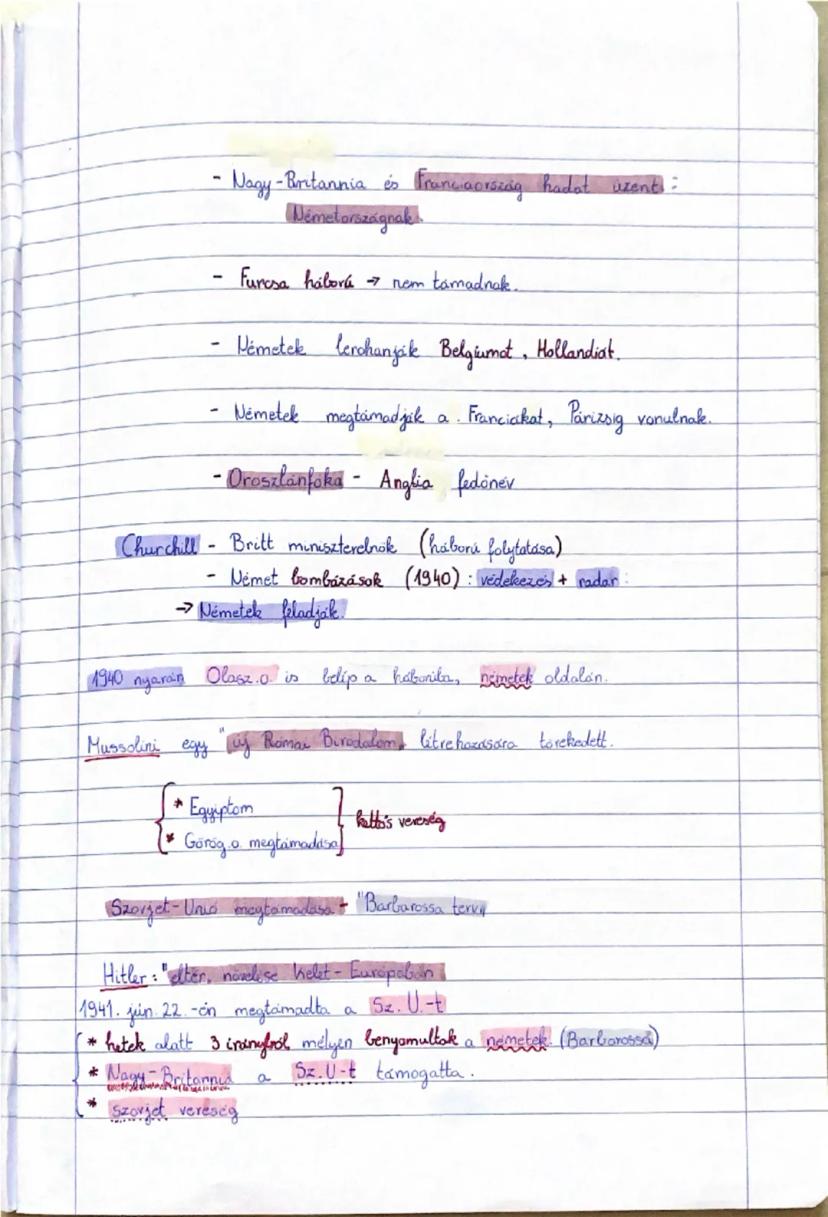 - Nagy-Britannia és Franciaország hadat üzent:
Németországnak.
- Furcsa háború → nem támadnak.
- Németek lerohanják Belgiumot, Hollandiát.
- Németek megtámadják a Franciákat, Párizsig vonulnak.
- Oroszlánfóka - Anglia fedőnév
Churchill - Britt miniszterelnök (háború folytatása)
- Német bombázások (1940): védekezés + radar:
→ Németek feladják.
1940 nyarán Olasz.o. is belép a háborúba, németek oldalán.
Mussolini egy "új Római Birodalom" létrehozására törekedett.
* Egyiptom
* Görög.o. megtámadása
kettős vereség
Szovjet-Unió megtámadása - "Barbarossa terv"
Hitler: "élttér, növelése Kelet-Európában
1941. jún. 22.-én megtámadta a Sz.U.-t
* hetek alatt 3 irányból mélyen benyomultak a németek. (Barbarossa)
* Nagy-Britannia a Sz.U-t támogatta.
* szovjet vereség